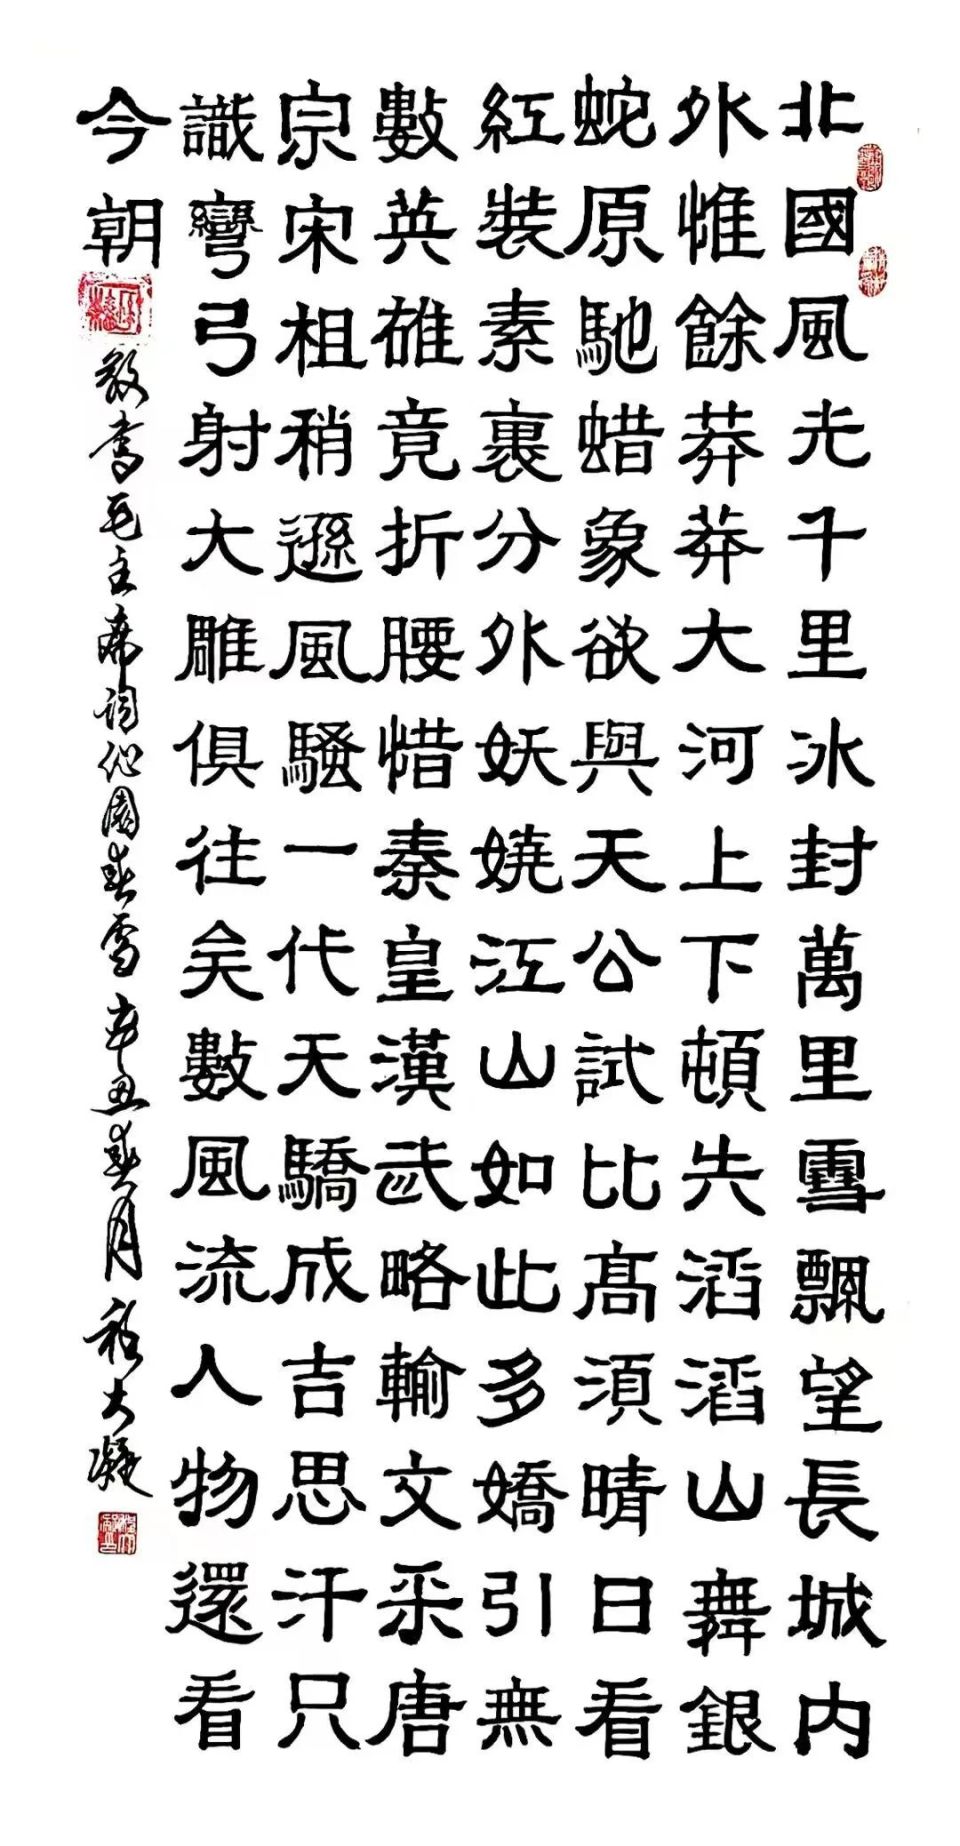 北國風光千里冰封萬里雪飄望長城内
外惟餘莽莽大河上下頓失滔滔山舞銀
蛇原馳蜡象欲與天公試比高須晴日看
紅裝素裹分外妖嬈江山如此多嬌引無
數英雄竟折腰惜秦皇漢武略輸文采唐
宗宋祖稍遜風騷一代天驕成吉思汗只
識彎弓射大雕俱往矣數風流人物還看
今朝
敬書毛主席詞沁園春雪辛丑春月程大凝